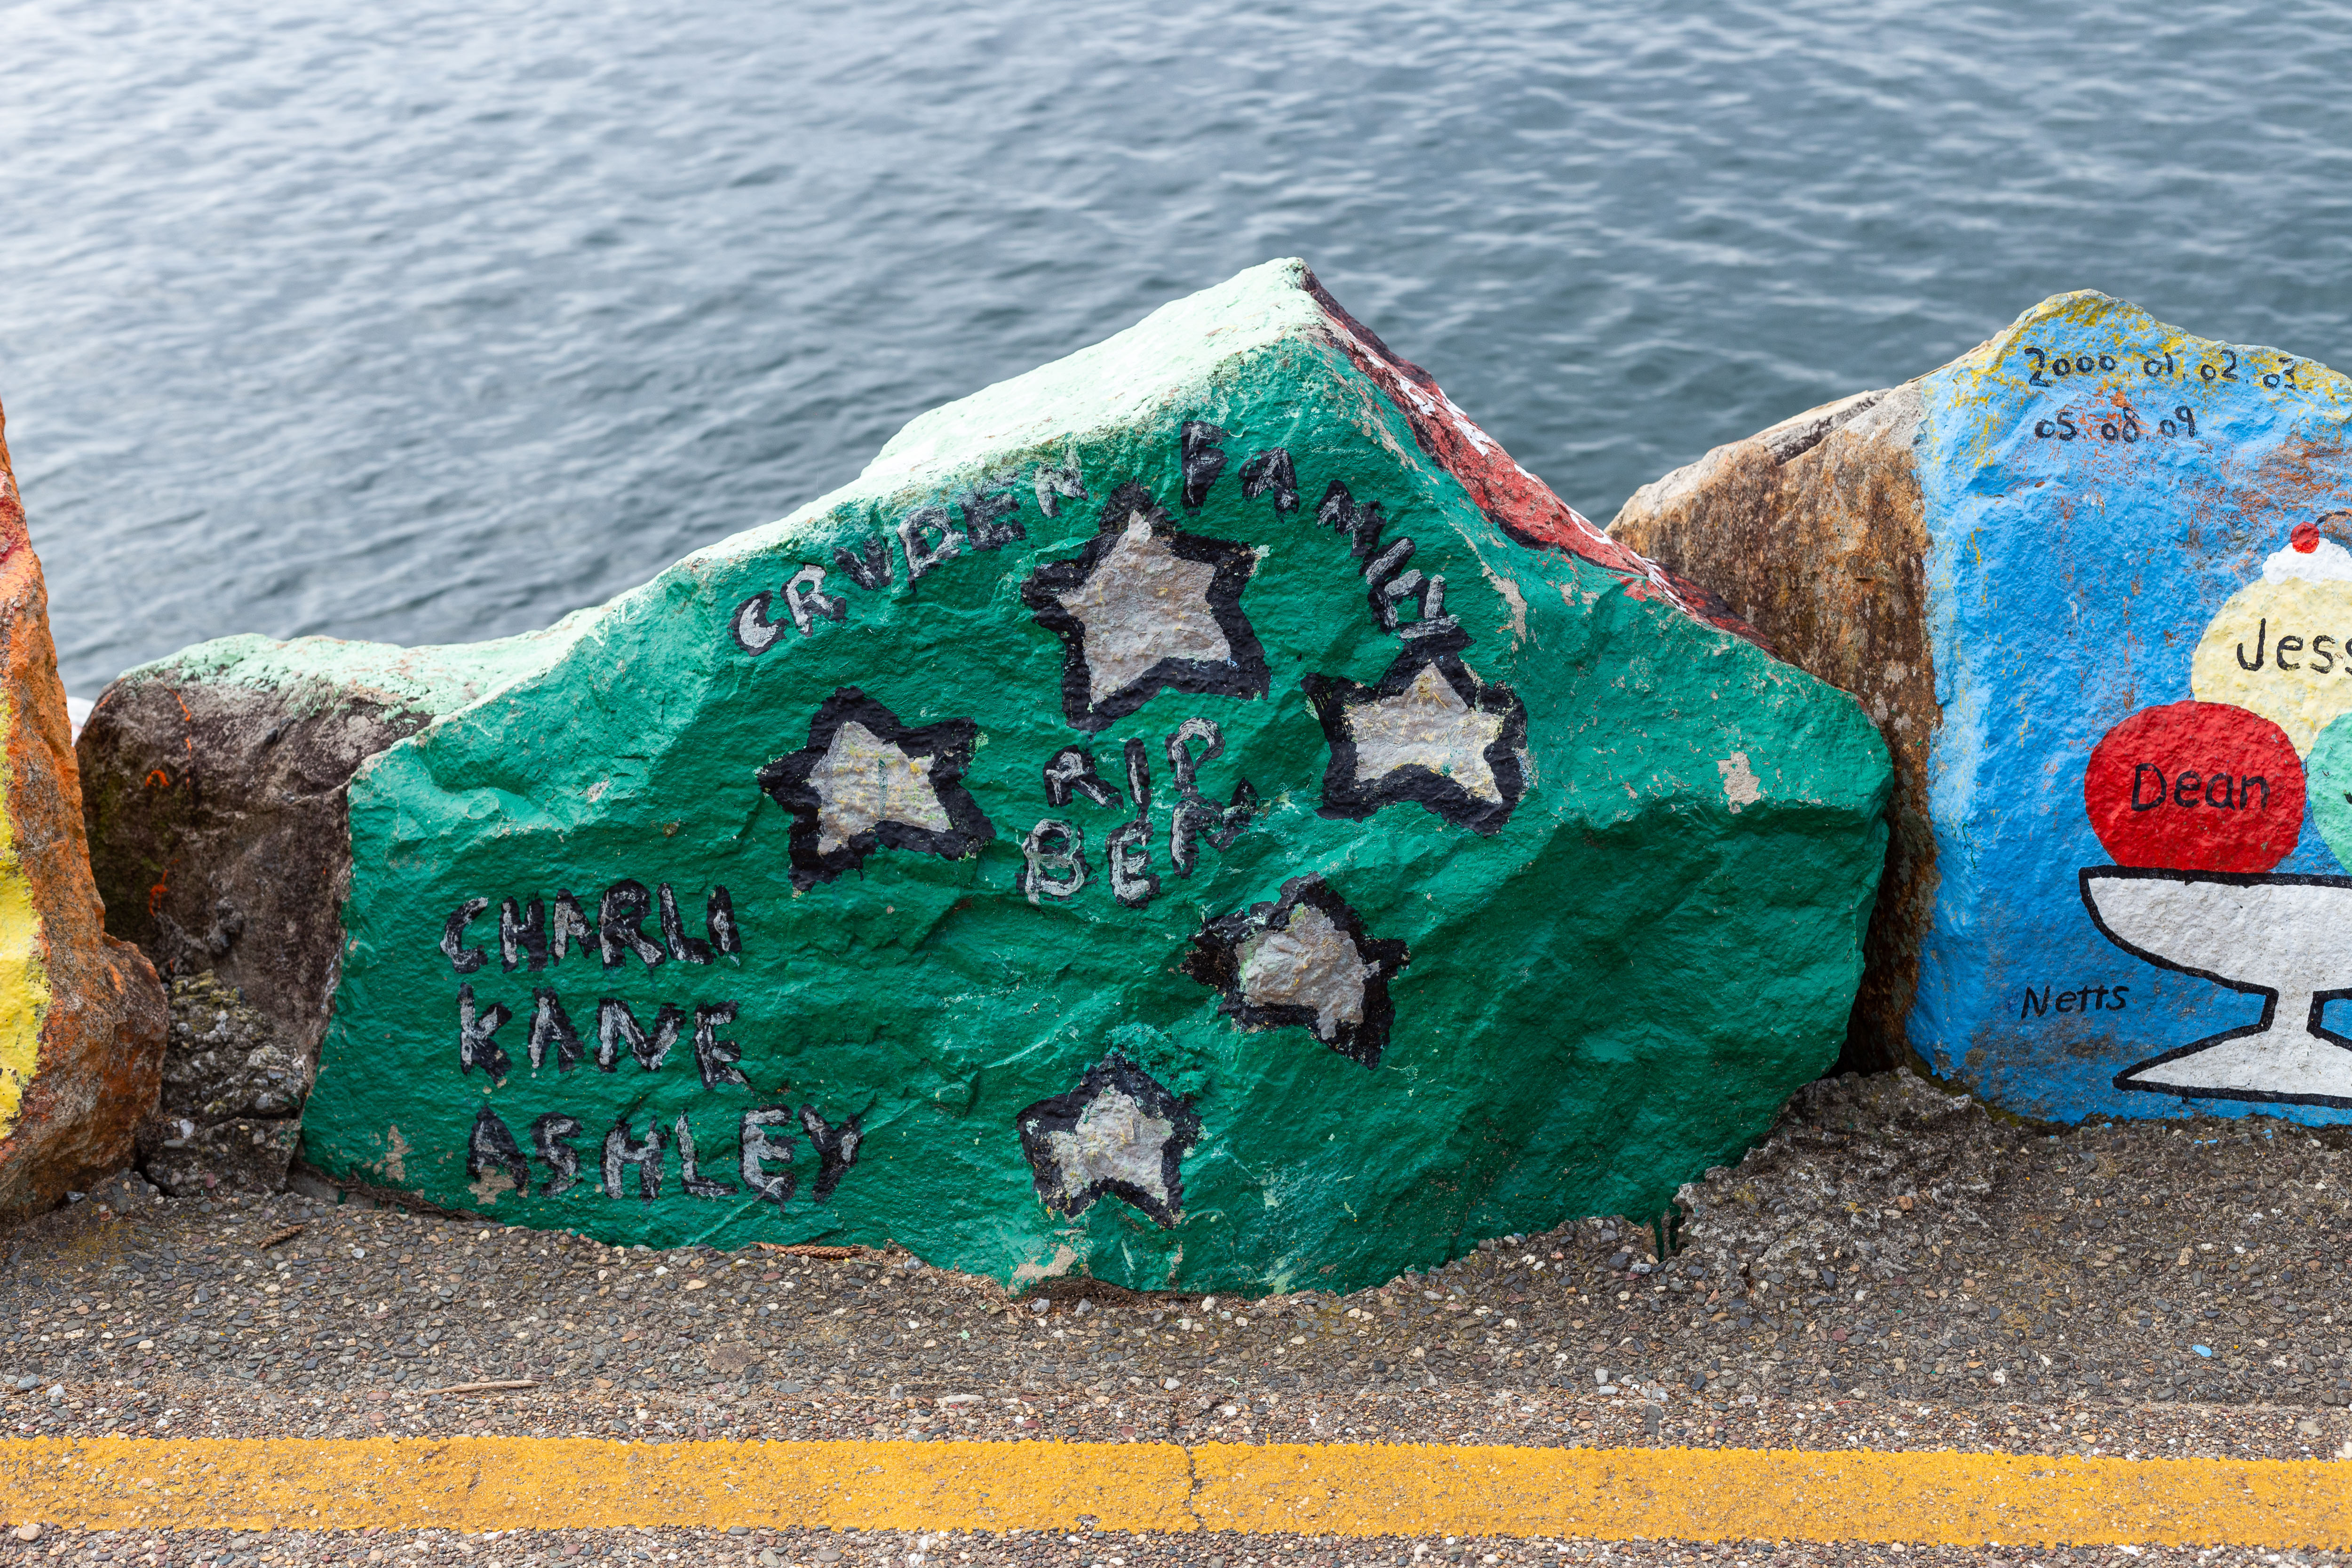 CRUDEN FAMILY
RIP
BEN
CHARLI
KANE
ASHLEY
2000.01.02.03
05.08.09
Dean
Netts